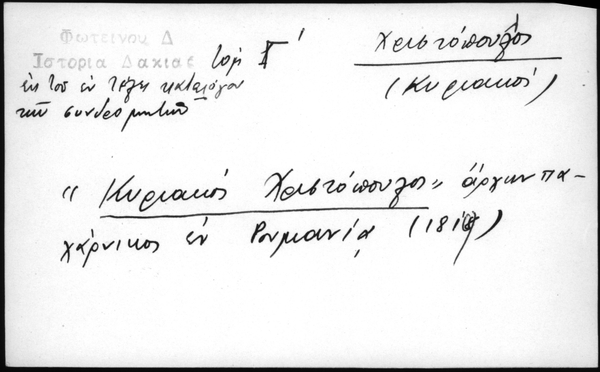 Φωτεινου Δ
Ιστορια Δακιας τομ Γ'
εκ του εν τέλει καταλόγου
των συνδρομητών
Χριστόπουλος
(Κυριακός)
" Κυριακός Χριστόπουλος" άρχων πα-
χάρνικος εν Ρουμανία (1818)